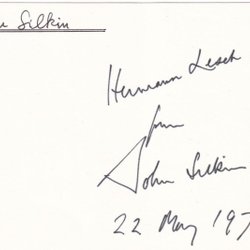 Silkin
Hermann Lesch
from
John Silkin
22 May 197